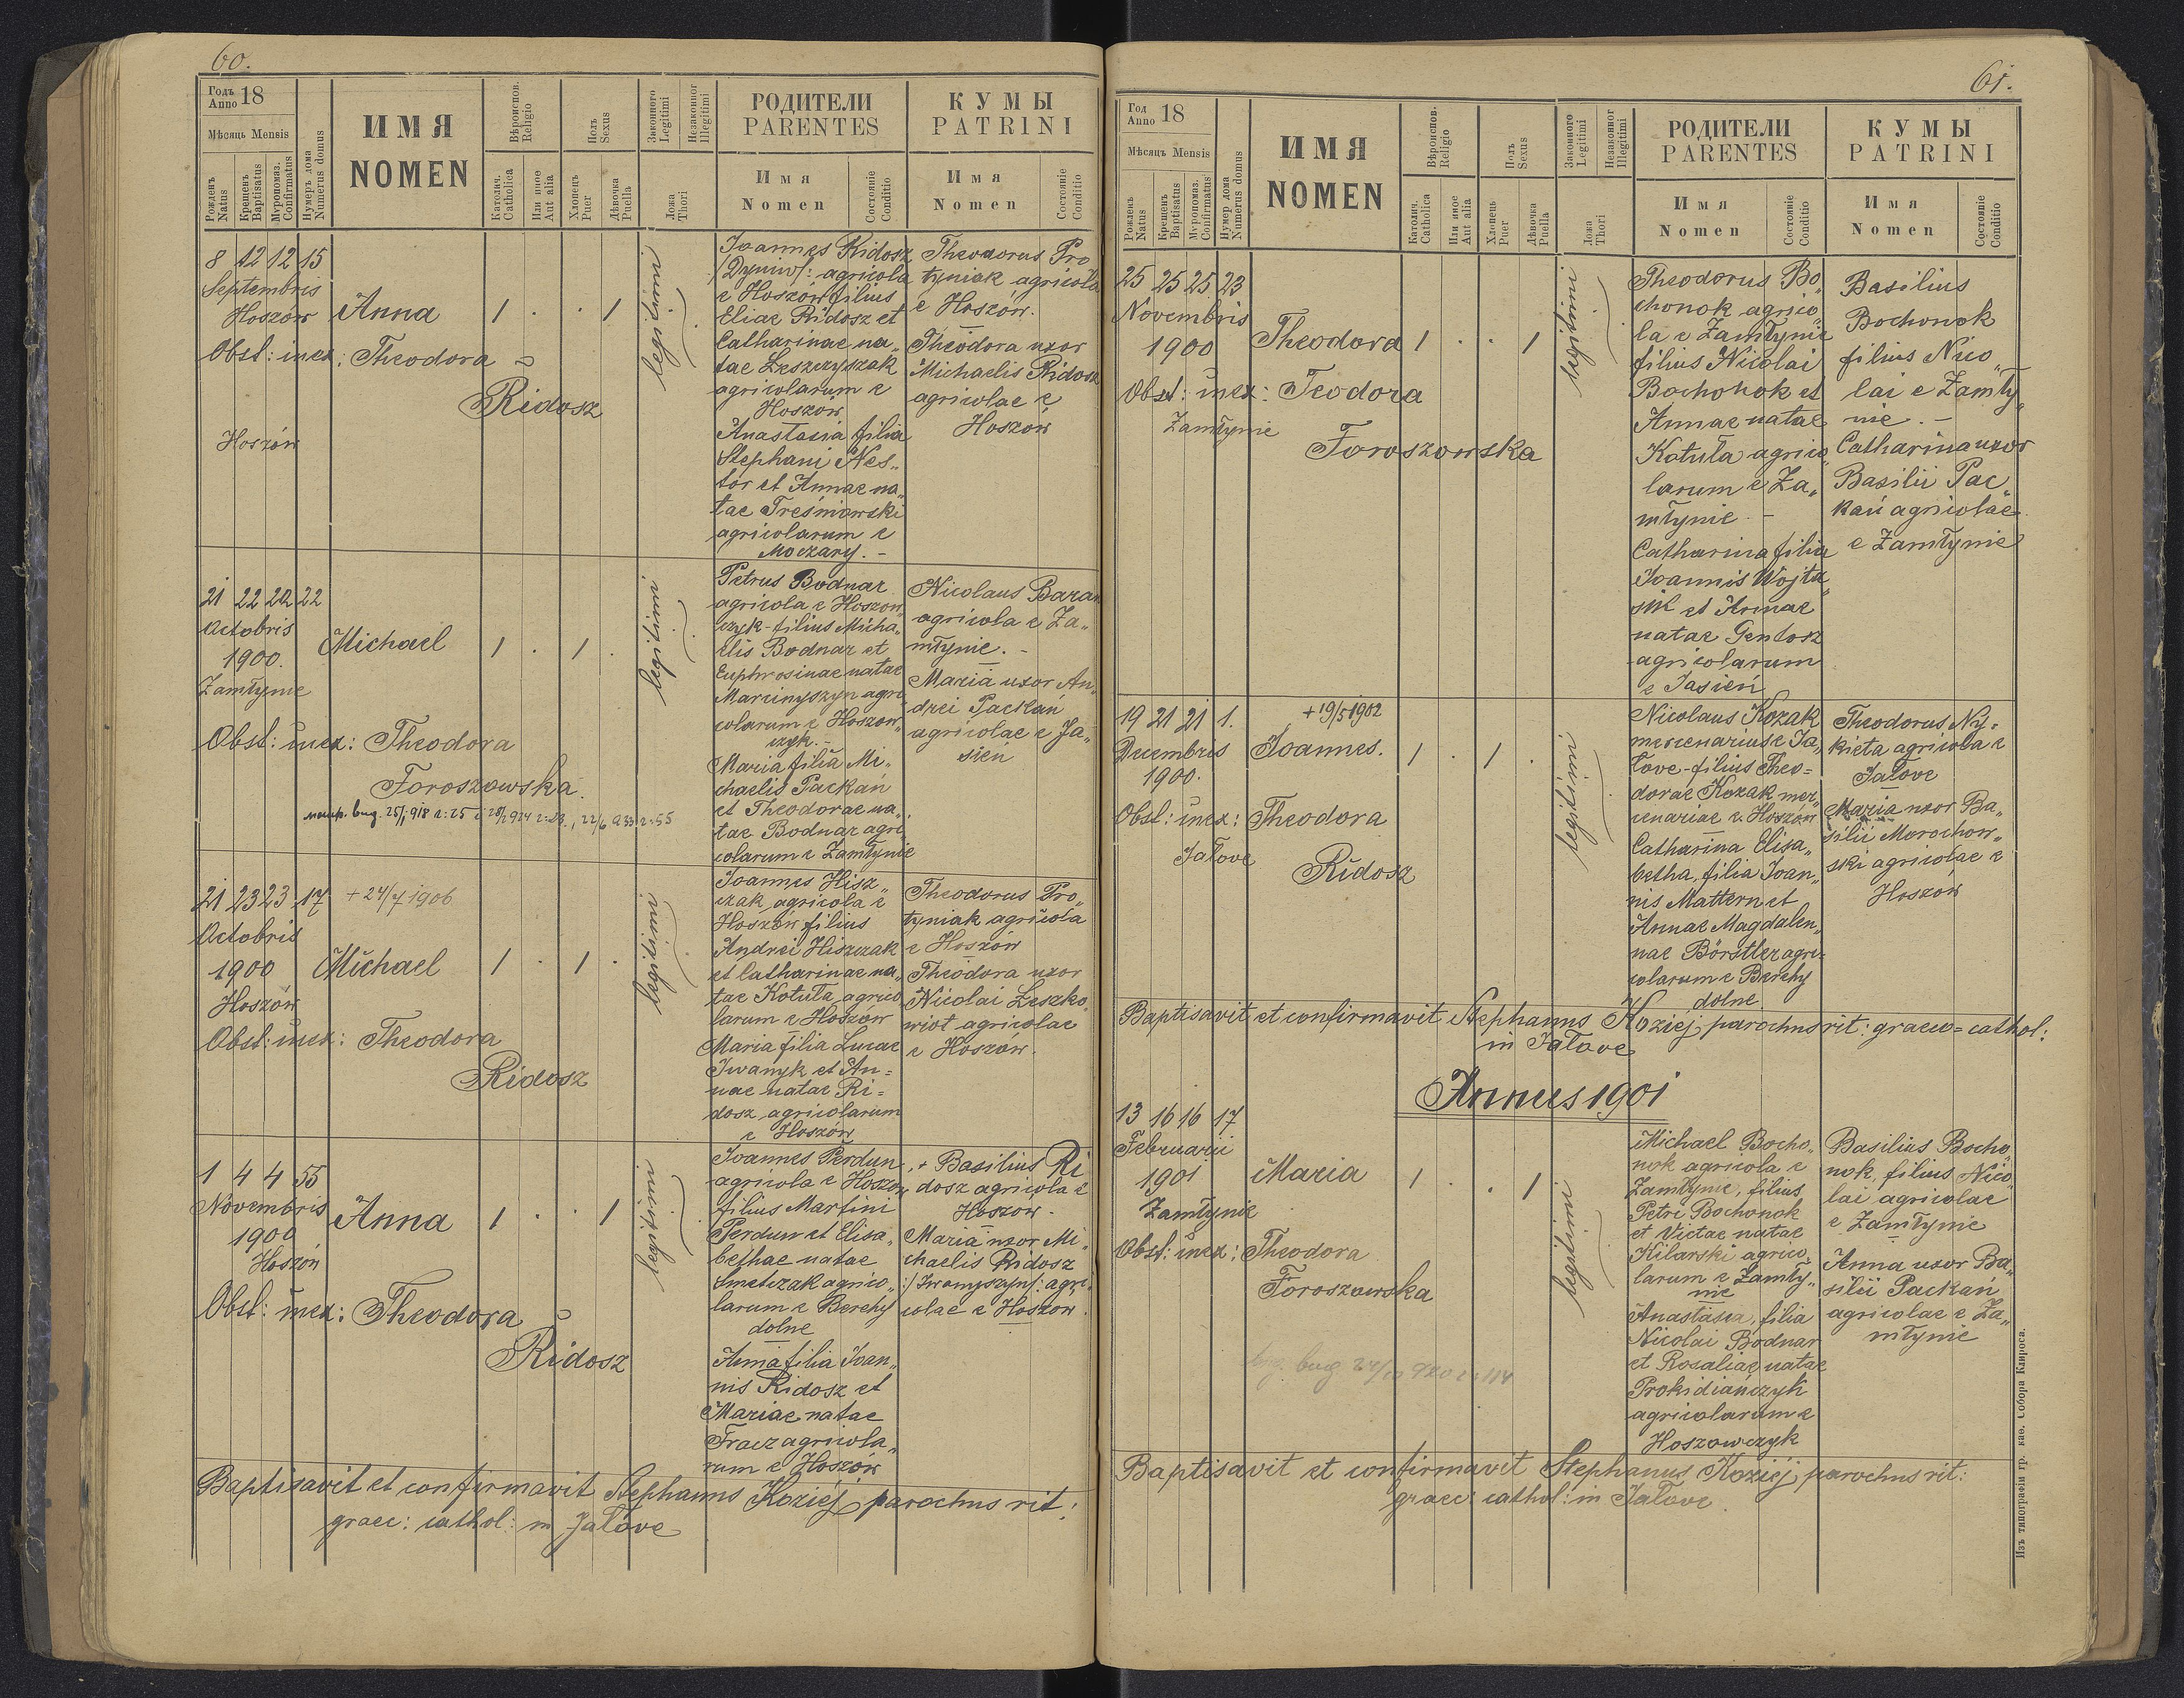 60.
Годъ Anno 18
Мѣсяць Mensis
Рожденъ Natus
Крещенъ Baptisatus
Муропомаз. Confirmatus
Нумеръ дома Numerus domus
ИМЯ
NOMEN
Вѣроиспов. Religio
Католич. Catholica
Или иное Aut alia
Полъ Sexus
Хлопецъ Puer
Дѣвочка Puella
Законного Legitimi
Незаконног Illegitimi
Ложа Thori
РОДИТЕЛИ
PARENTES
Имя
Nomen
Состояніе Conditio
КУМЫ
PATRINI
Имя
Nomen
Состояніе Conditio
8 12 12 15
Septembris
Hoszów Anna 1 . . 1 legitimi
Obst: inex: Theodora
Ridosz
Hoszów
Joannes Ridosz
/Dyniw/: agricola
e Hoszów filius
Eliae Ridosz et
Catharinae na„
tae Leszczyszak
agricolarum e
Hoszów
Anastasia filia
Stephani Nes„
tor et Annae na„
tae Treśniowski
agricolarum e
Moczary. –
Theodorus Pro
tyniak agricola
e Hoszów.
Theodora uxor
Michaelis Ridosz
agricolae e
Hoszów
21 22 22 22
Octobris
1900. Michael 1 . 1 . legitimi
Zamłynie
Obst: inex: Theodora
Foroszowska.
Petrus Bodnar
agricola e Hoszow„
czyk - filius Micha„
elis Bodnar et
Euphrosinae natae
Marcinyszyn agri
colarum e Hoszow„
czyk. –
Maria filia Mi„
chaelis Packań
et Theodorae na„
tae Bodnar agri
colarum e Zamłynie
Nicolaus Baran
agricola e Za„
młynie. –
Maria uxor An„
drei Packań
agricolae e Ja„
sień
21 23 23 17 + 24/7 1906
Octobris
1900 Michael 1 . 1 . legitimi
Hoszów
Obst: inex: Theodora
Ridosz
Joannes Hisz„
czak agricola e
Hoszów filius
Andrei Hiszczak
et Catharinae na„
tae Kotuła agrico
larum e Hoszów
Maria filia Lucae
Iwanyk et An=
nae natae Ri=
dosz agricolarum
e Hoszów
Theodorus Pro„
tyniak agricola
e Hoszów
Theodora uxor
Nicolai Leszko
wiot agricolae
e Hoszów.
1 4 4 55
Novembris
1900 Anna 1 . . 1 legitimi
Hoszów
Obst: inex: Theodora
Ridosz
Joannes Perdun
agricola e Hoszow
filius Martini
Perdun et Elisa„
bethae natae
Smetczak agrico„
larum e Berehy
dolne
Anna filia Joan„
nis Ridosz et
Mariae natae
Tracz agricola„
rum e Hoszów
+ Basilius Ri
dosz agricola e
Hoszow.
Maria uxor Mi„
chaelis Ridosz
:/Iwanyszyn/: agri
colae e Hoszow.
Baptisavit et confirmavit Stephanus Koziej parochus rit:
graec: cathol: in Jałove
61.
Год Anno 18
Мѣсяць Mensis
Рожденъ Natus
Крещенъ Baptisatus
Муропомаз. Confirmatus
Нумер дома Numerus domus
ИМЯ
NOMEN
Вѣроиспов. Religio
Католич. Catholica
Или иное Aut alia
Полъ Sexus
Хлопець Puer
Дѣвочка Puella
Законного Legitimi
Незаконног Illegitimi
Ложа Thori
РОДИТЕЛИ
PARENTES
Имя
Nomen
Состояніе Conditio
КУМЫ
PATRINI
Имя
Nomen
Состояніе Conditio
25 25 25 23
Novembris
1900 Theodora 1 . . 1 legitimi
Obst: inex: Teodora
Zamłynie
Foroszowska
Theodorus Bo„
chonok agrico„
la e Zamłynie
filius Nicolai
Bochonok et
Annae natae
Kotuła agrico„
larum e Za„
młynie –
Catharina filia
Joannis Wojta„
sik et Annae
natae Gentosz
agricolarum
e Jasień
Basilius
Bochonok
filius Nico„
lai e Zamły„
nie. –
Catharina uxor
Basilii Pac„
kań agricolae
e Zamłynie
19 21 21 1. + 19/5 1902
Decembris Joannes. 1 . 1 . legitimi
1900.
Obst: inex: Theodora
Jałove Ridosz
Nicolaus Kozak
mercenarius e Ja„
łove - filius Theo=
dorae Kozak mer„
cenariae e Hoszów
Catharina Elisa„
betha, filia Joan„
nis Mattern et
Annae Magdalen„
nae Börstler agri=
colarum e Berehy
dolne
Theodorus Ny„
kieta agricola e
Jałove
Maria uxor Ba„
silii Morochow„
ski agricolae e
Hoszów
Baptisavit et confirmavit Stephanus Koziej parochus rit: graeco=cathol:
in Jałove
Annus 1901
13 16 16 17
Februarii
1901 Maria 1 . . 1 legitimi
Zamłynie
Obst: inex: Theodora
Foroszowska
Michael Bocho„
nok agricola e
Zamłynie, filius
Petri Bochonok
et Victae natae
Kilarski agrico„
larum e Zamły„
nie
Anastasia, filia
Nicolai Bodnar
et Rosaliae natae
Prokidiańczyk
agricolarum e
Hoszowczyk
Basilius Bocho„
nok, filius Nico„
lai agricolae
e Zamłynie
Anna uxor Ba„
silii Packań
agricolae e Za„
młynie
Baptisavit et confirmavit Stephanus Koziej parochus rit:
graec: cathol: in Jałove.
Изъ типографіи гр. кае. Собора Клироса.